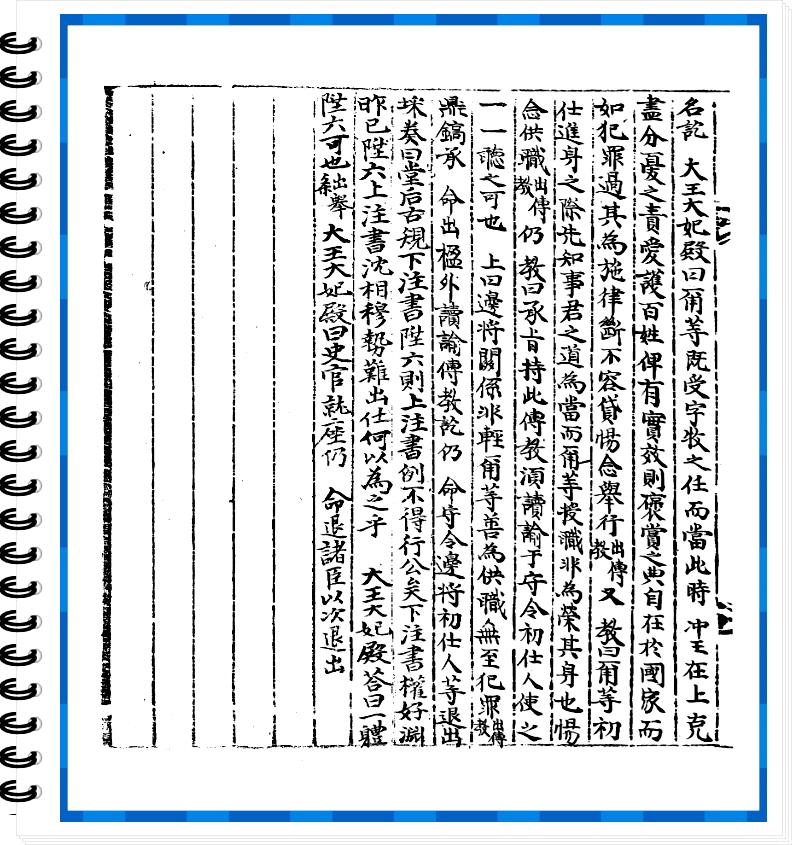 名訖 大王大妃殿曰爾等既受字牧之任而當此時 冲王在上克
盡分憂之責愛護百姓俾有實效則褒賞之典自在於國家而
如犯罪過其為施律斷不容貸惕念擧行出傳教又 教曰爾等初
仕進身之際先知事君之道為當而爾等授職非為榮其身也惕
念供職出傳教仍 教曰承旨持此傳教須讀諭于守令初仕人使之
一一聽之可也 上曰邊將關係非輕爾等善為供職無至犯罪出傳教
鼎鎬承 命出楹外讀諭傳教訖仍 命守令邊將初仕人等退出
埰奏曰堂后古規下注書陞六則上注書例不得行公矣下注書權好淵
昨已陞六上注書沈相穆勢難出仕何以為之乎 大王大妃殿答曰一體
陞六可也出擧 大王大妃殿曰史官就座仍 命退諸臣以次退出